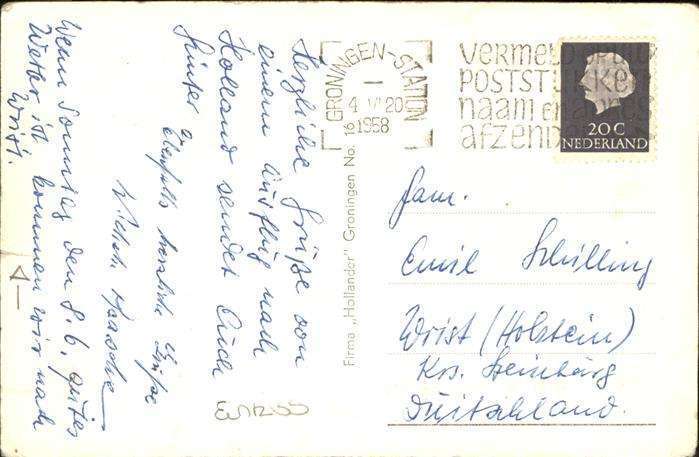 Herzliche Grüße von
einem Ausflug nach
Holland sendet Euch
Günter
Ebenfalls herzliche Grüße
Wilh.
Wenn Sonntag den 8.6. gutes
Wetter ist kommen wir nach
Wrist.
Firma „Hollander" Groningen No. 16
GRONINGEN-STATION
4 VI 20
1958
vermeld op uw
POSTSTUKKEN
naam en adres
afzender
20C
NEDERLAND
Fam.
Emil Schilling
Wrist (Holstein)
Krs. Steinburg
Deutschland.